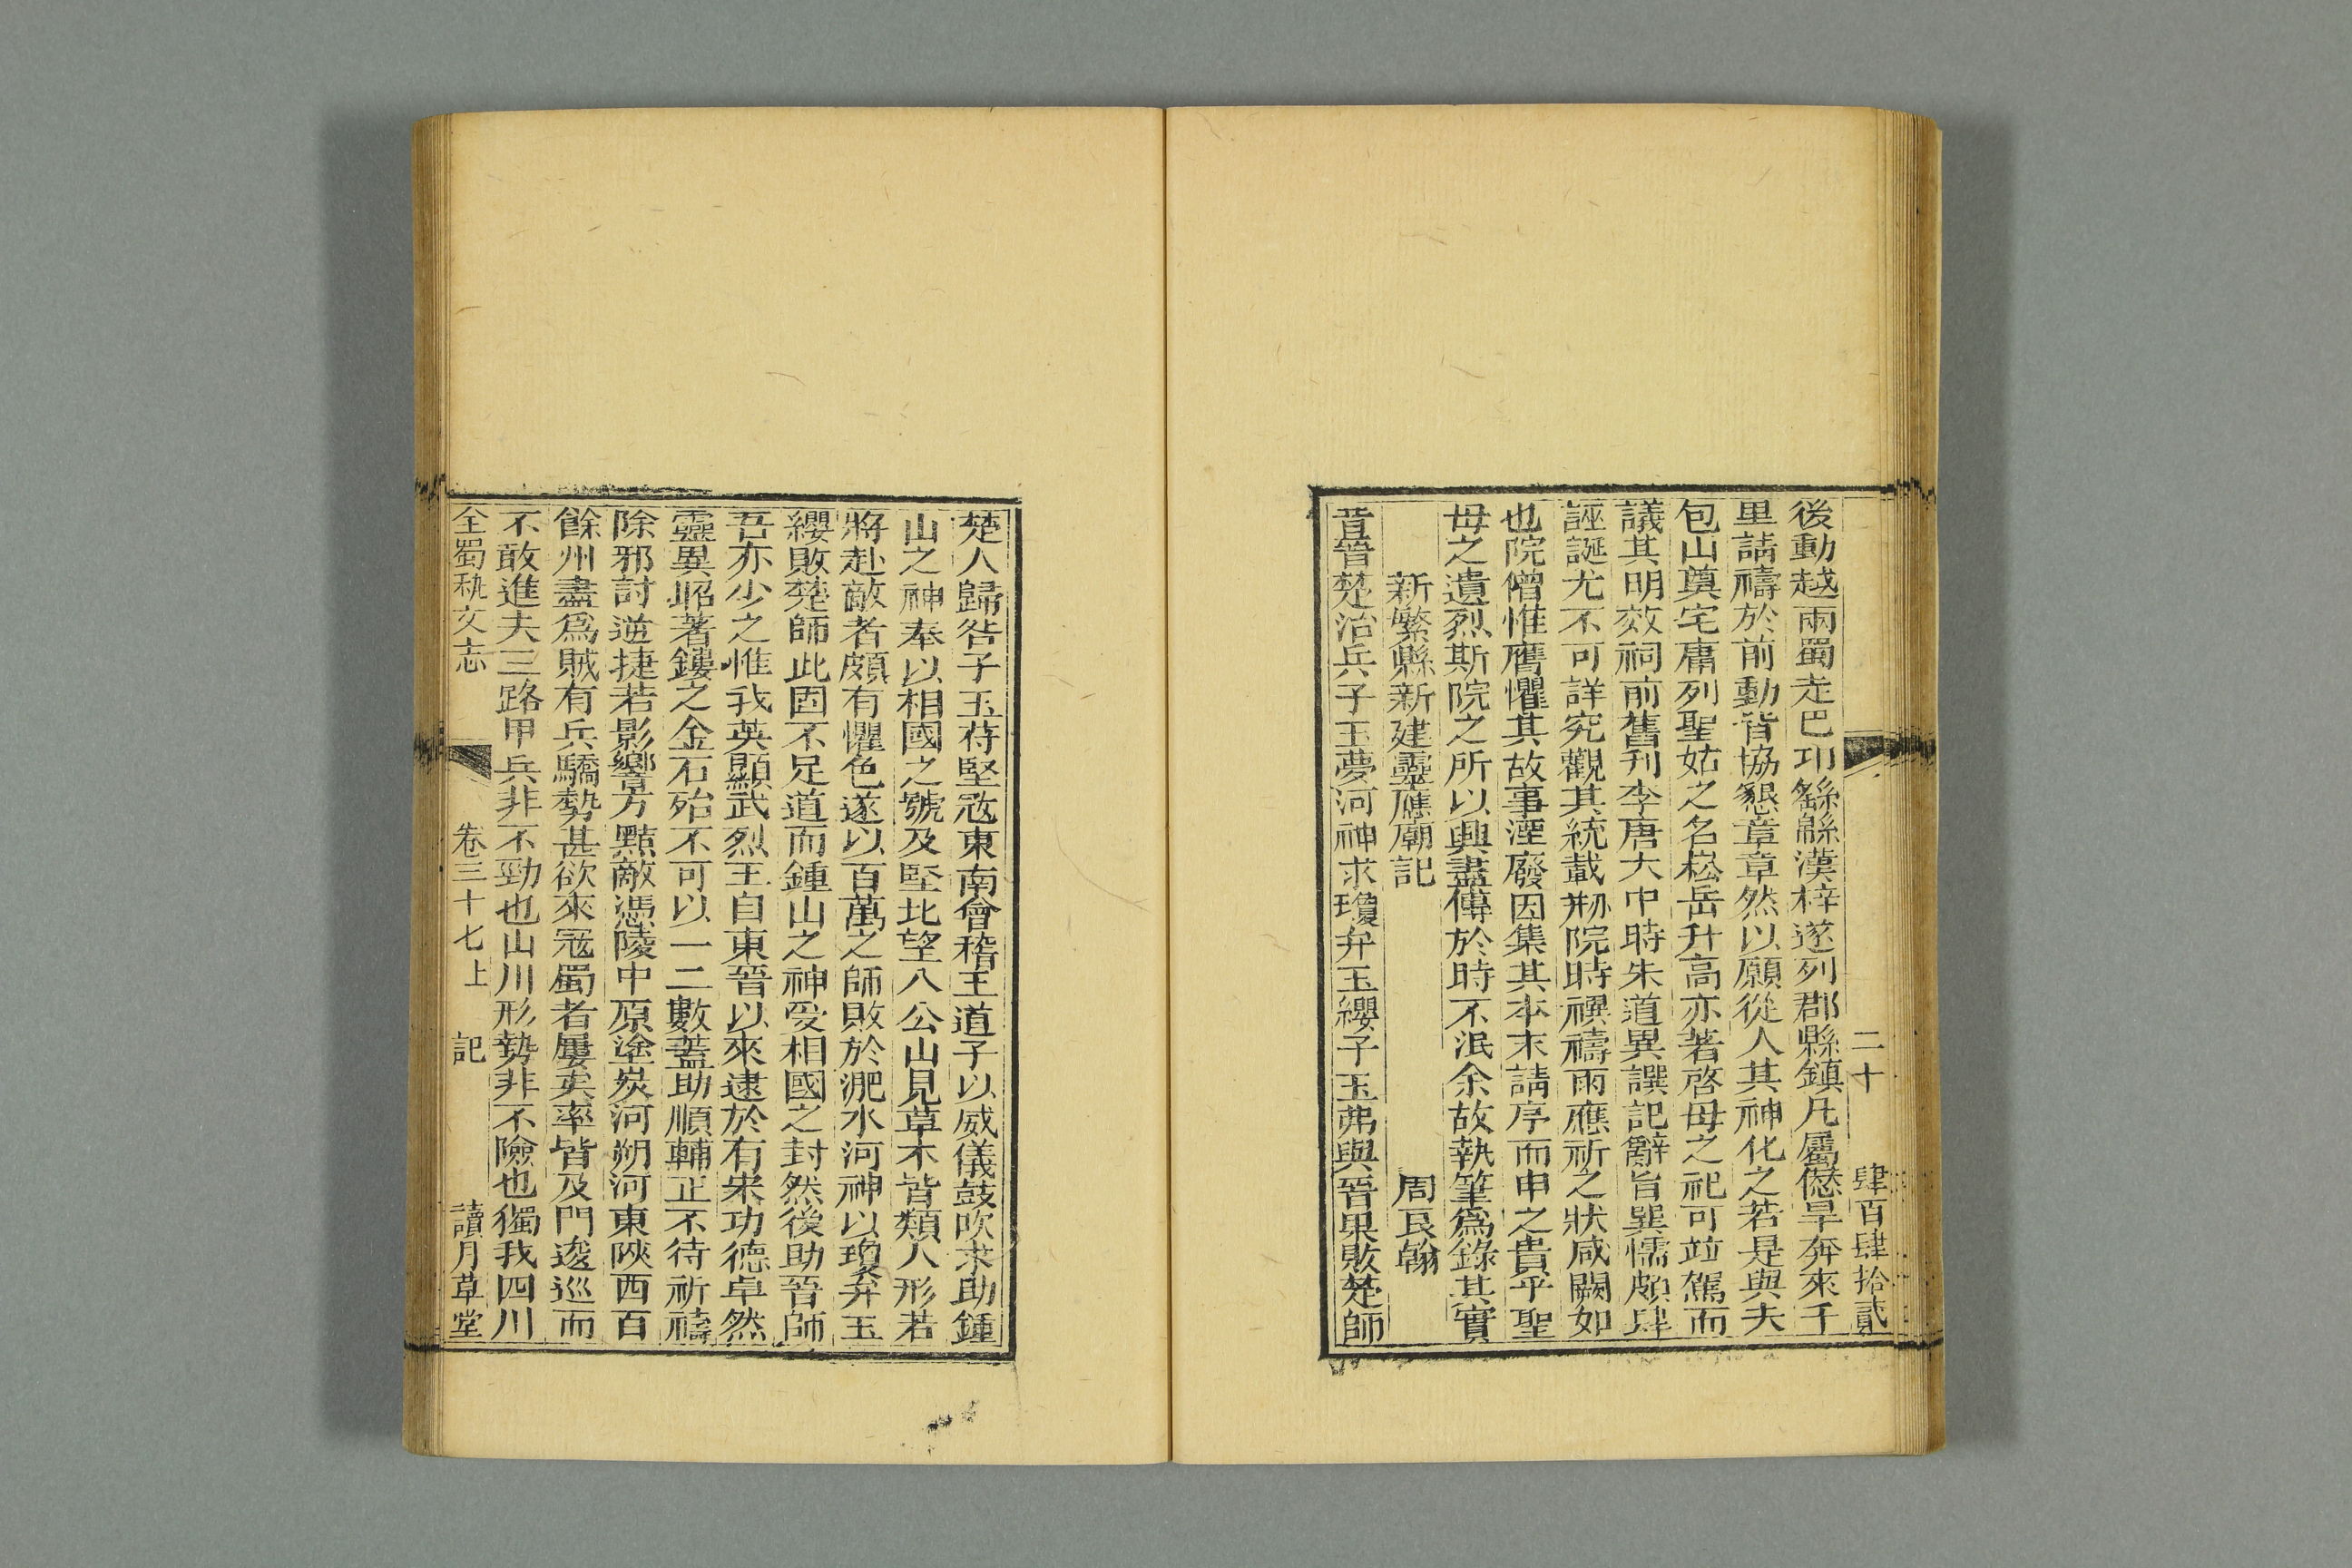 二十　肆百肆拾貳
後動越兩蜀走巴邛緜漢梓遂列郡縣鎮凡屬愆旱奔來千
里請禱於前動皆協懇章章然以願從人其神化之若是與夫
包山奠宅庸列聖姑之名崧岳升高亦著啓母之祀可竝駕而
議其明效祠前舊刋李唐大中時朱道異譔記辭旨巽懦頗肆
誣誕尤不可詳究觀其統載刱院時禩禱雨應祈之狀咸闕如
也院僧惟膺懼其故事湮廢因集其本末請序而申之貴乎聖
母之遺烈斯院之所以興盡傳於時不泯余故執筆爲錄其實
新繁縣新建靈應廟記　周良翰
昔晉楚治兵子玉夢河神求瓊弁玉纓子玉弗與晉果敗楚師
楚人歸咎子玉苻堅寇東南會稽王道子以威儀鼓吹求助鍾
山之神奉以相國之號及堅北望八公山見草木皆類人形若
將赴敵者頗有懼色遂以百萬之師敗於淝水河神以瓊弁玉
纓敗楚師此固不足道而鍾山之神受相國之封然後助晉師
吾亦少之惟我英顯武烈王自東晉以來逮於有宋功德卓然
靈異昭著鏤之金石殆不可以一二數蓋助順輔正不待祈禱
除邪討逆捷若影響方黠敵憑陵中原塗炭河朔河東陝西百
餘州盡爲賊有兵驕勢甚欲來寇蜀者屢矣率皆及門逡巡而
不敢進夫三路甲兵非不勁也山川形勢非不險也獨我四川
全蜀秇文志　卷三十七上　記　讀月草堂